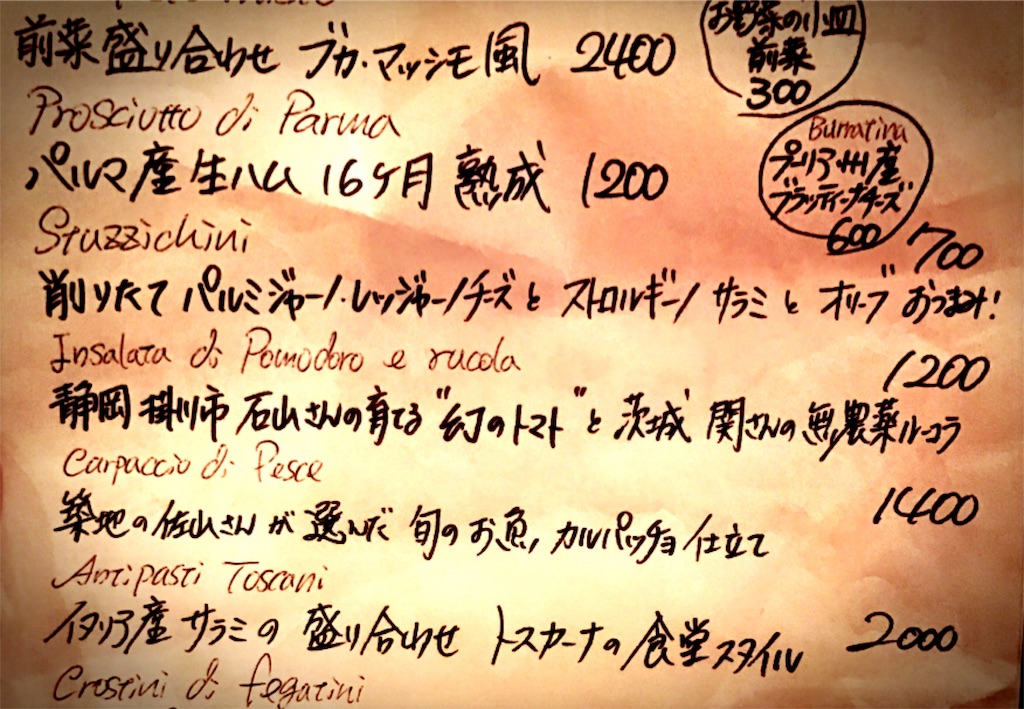 前菜盛り合わせ ブカ・マッシモ風 2400
お野菜の小皿
前菜
300
Prosciutto di Parma
パルマ産生ハム 16ケ月 熟成 1200
Burratina
プーリア州産
ブラッティーナチーズ
600
Stuzzichini 700
削りたて パルミジャーノ・レッジャーノチーズと ストロルギーノ サラミと オリーブ おつまみ!
Insalata di Pomodoro e rucola 1200
静岡 掛川市 石山さんの育てる "幻のトマト" と 茨城 関さんの無農薬ルーコラ
Carpaccio di Pesce 1400
築地の佐山さんが選んだ 旬のお魚 カルパッチョ仕立て
Antipasti Toscani
イタリア産サラミの 盛り合わせ トスカーナの食堂スタイル 2000
Crostini di fegatini